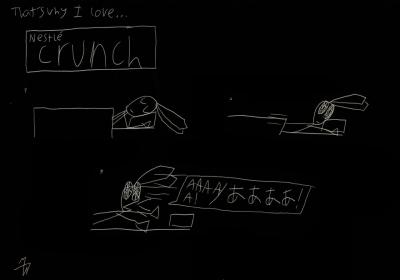 That's why I love...
Nestlé
crunch
AAAA
A! ああああ!